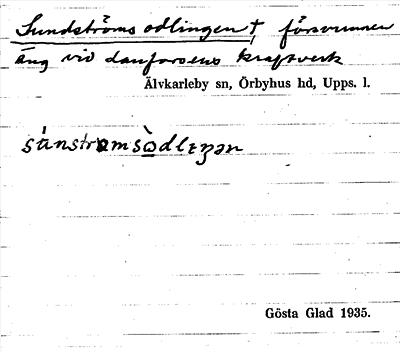 Sundströms odlingen † försvunnen
äng vid Lanforsens kraftverk
Älvkarleby sn, Örbyhus hd, Upps. l.
Gösta Glad 1935.